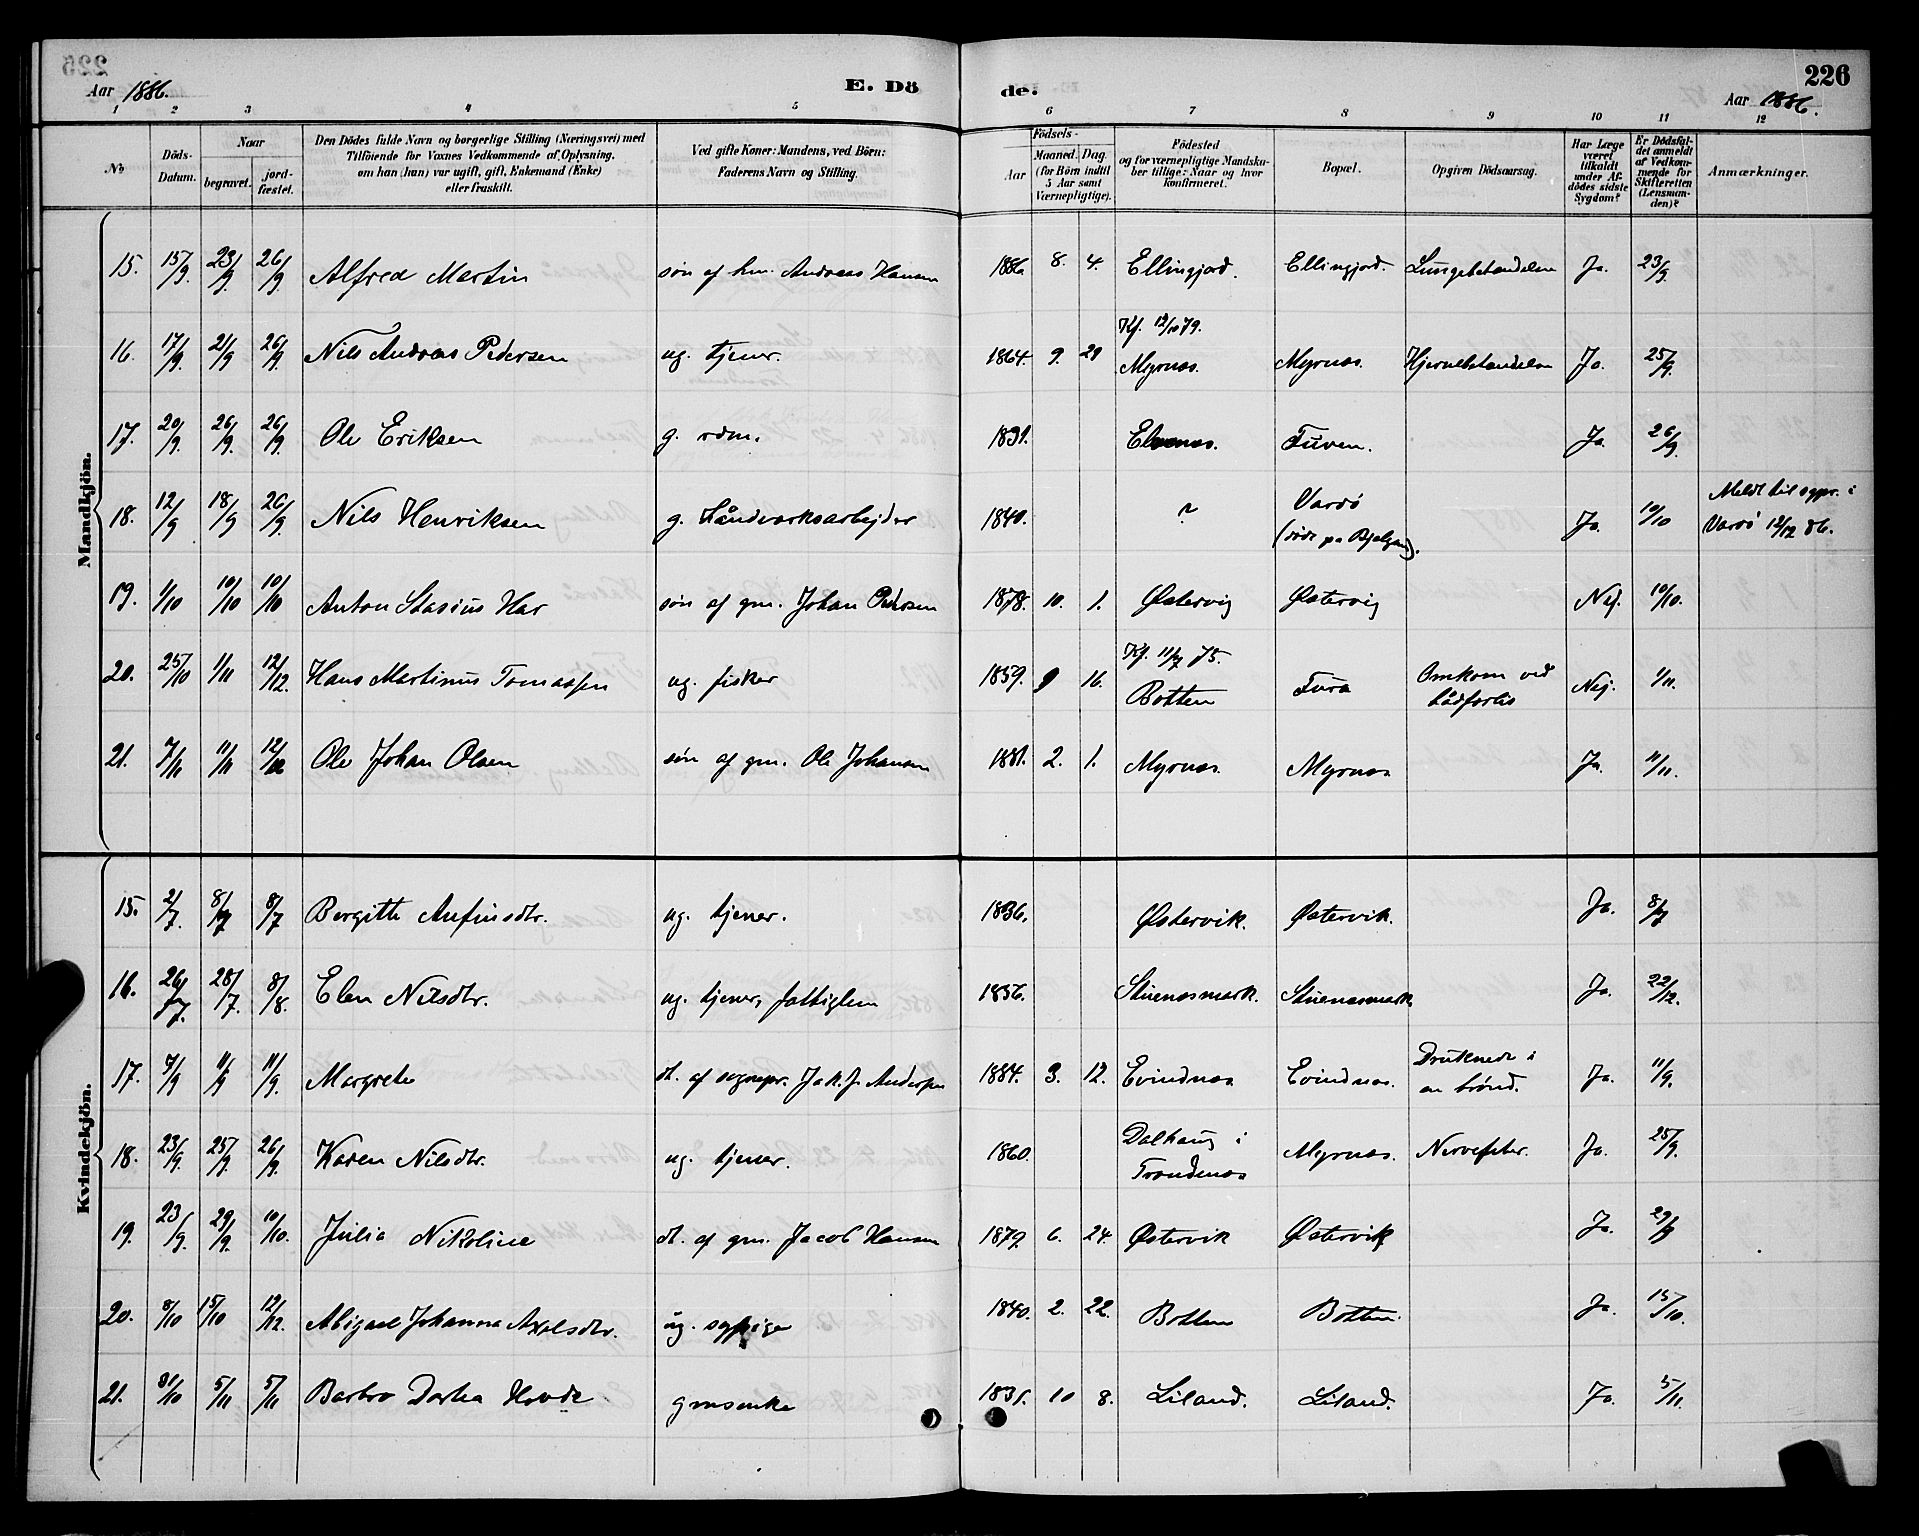 225
226
Aar 1886.
E. Dö
de.
Aar 1886.
1 2 3 4 5 6 7 8 9 10 11 12
No
Döds-Datum.
Naar
begravet.
jord-fæstet.
Den Dödes fulde Navn og borgerlige Stilling (Næringsvei) med
Tilföiende for Voxnes Vedkommende af Oplysning,
om han (hun) var ugift, gift, Enkemand (Enke)
eller fraskilt.
Ved gifte Koner: Mandens, ved Börn:
Faderens Navn og Stilling.
Födsels-
Aar
Maaned.
Dag.
(for Börn indtil
5 Aar samt
Værnepligtige).
Födested
og for værnepligtige Mandska-
ber tillige: Naar og hvor
konfirmeret.
Bopæl.
Opgiven Dödsaarsag.
Har Læge
været
tilkaldt
under Af-
dödes sidste
Sygdom?
Er Dödsfal-
det anmeldt
af Vedkom-
mende for
Skifteretten
(Lensman-
den)?
Anmærkninger.
Mandkjön.
15. 15/9. 23/9. 26/9. Alfred Martin søn af hm. Andreas Hansen 1886 8. 4. Ellingjord. Ellingjord. Lungebetændelse Ja. 23/9.
Kf. 12/10 79.
16. 17/9. 21/9 26/9. Nils Andreas Pedersen ug. tjener. 1864. 9. 21 Myrnes. Myrnes. Hjernebetændelse Ja. 25/9.
17. 20/9. 26/9. 26/9. Ole Eriksen g. rdm. 1831. Elvenes. Tuven. Ja. 26/9.
18. 12/9 18/9 26/9. Nils Henriksen g. Håndverksarbejder 1840. ? Vardø Ja. 10/10 Meldt til sgpr. i
(døde pa Bjelgam). Vardø 12/12 86.
19. 1/10 10/10 10/10 Anton Stasius Har søn af gm. Johan Pedersen 1878. 10. 1. Østervig Østervig Nej. 10/10.
Kf. 11/7 75.
20. 25/10 1/11 12/12. Hans Martinus Tomassen ug. fisker 1859. 9 16. Botten Fura Omkom ved Nej. 1/11.
bådforlis
21. 7/11 11/11 12/12 Ole Johan Olsen søn af gm. Ole Johansen 1881. 2. 1. Myrnes. Myrnes Ja. 11/11.
Kvindekjön.
15. 2/7. 8/7 8/7 Bergitte Anfinsdtr. ug. tjener. 1836. Østervik. Østervik. Ja. 8/7
16. 26/7. 28/7. 8/8. Elen Nilsdtr. ug. tjener, fattiglem 1856. Stuenesmark. Stuenesmark Ja. 22/12.
17. 7/9 11/9 11/9. Margrete dt. af sognepr. Jak. J. Anderssen 1884. 3. 12. Evindnes Evindnes. Druknede i Ja. 11/9.
en brønd.
18. 23/9. 25/9. 26/9. Karen Nilsdtr. ug. tjener. 1860. Dalhaug i Myrnes. Nervefeber. Ja. 25/9.
Trondenes
19. 23/9. 29/9. 10/10. Julia Nikoline dt. af gm. Jacob Hansen 1879. 6. 24. Østervik Østervik Ja. 29/9
20. 8/10 15/10 12/12. Abigael Johanna Axelsdtr. ug. sypige 1840. 2. 22. Botten Botten. Ja. 15/10.
21. 31/10 5/11 5/11 Barbro Dortea Hovde gmsenke 1831. 10 8. Liland. Liland. Ja. 5/11.